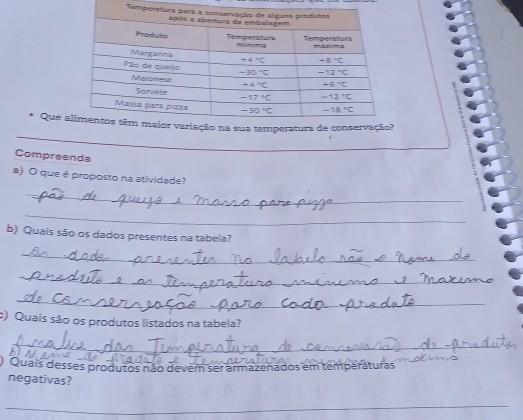 Temperatura para a conservação de alguns produtos
após a abertura da embalagem
Produto Temperatura mínima Temperatura máxima
Margarina +4 °C +8 °C
Pão de queijo −30 °C −12 °C
Maionese +4 °C +6 °C
Sorvete −17 °C −12 °C
Massa para pizza −30 °C −18 °C
• Que alimentos têm maior variação na sua temperatura de conservação?
Compreenda
a) O que é proposto na atividade?
pão de queijo e massa para pizza
b) Quais são os dados presentes na tabela?
Os dados presentes na tabela são o nome do
produto e as temperatura minimo e maximo
de conservação para cada produto
c) Quais são os produtos listados na tabela?
A malise das Temperatura de conservação de produtos
b) Nome do produto e temperatura minima e maxima
Quais desses produtos não devem ser armazenados em temperaturas
negativas?